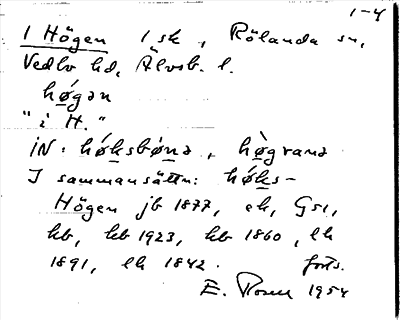 1-4
1 Högen 1 sk, Rölanda sn,
Vedbo hd, Älvsb. l.
hø̱gən
"i H."
iN: hø̱ksbø̱nə, hø̱grana
I sammansättn: hø̱ks-
Högen jb 1877, ek, Gs1,
kb, kb 1923, kb 1860, lk
1891, lk 1842. forts.
E. Rosell 1954